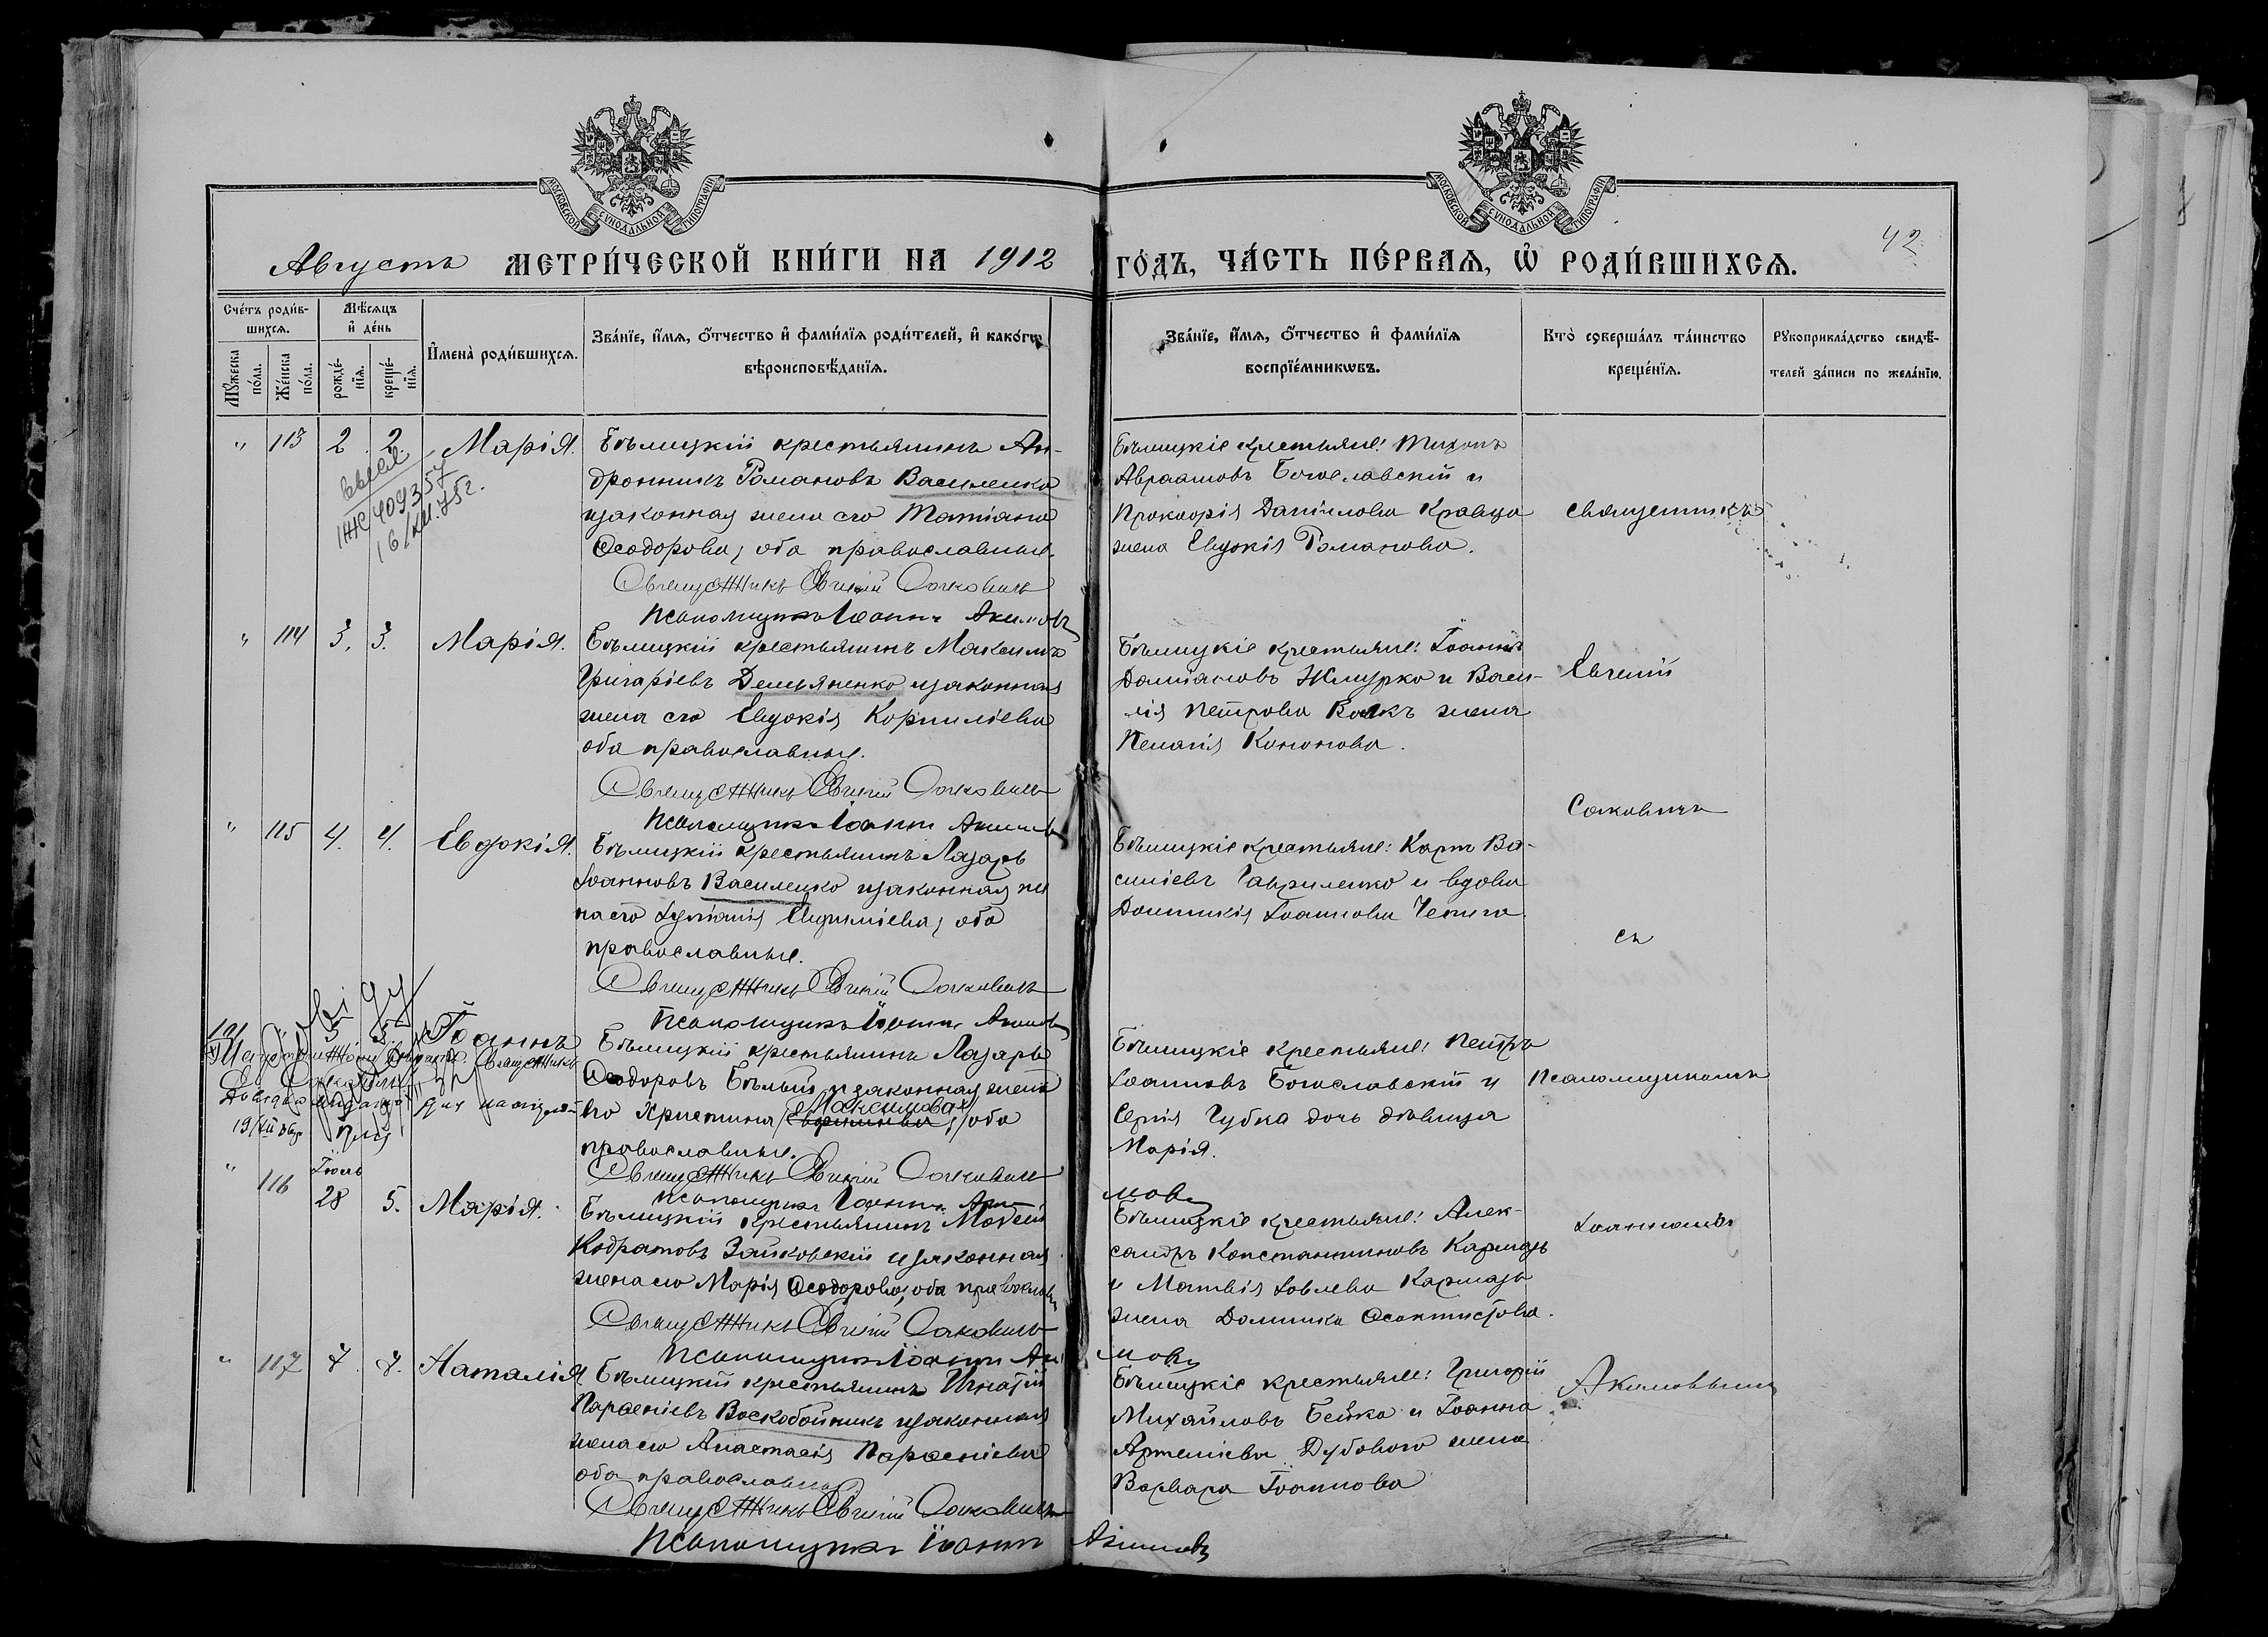 МОСКОВСКОЙ СУНОДАЛЬНОЙ ТИПОГРАФІИ
МОСКОВСКОЙ СУНОДАЛЬНОЙ ТИПОГРАФІИ
Августъ МЕТРИ́ЧЕСКОЙ КНИ́ГИ НА 1912
ГО́ДЪ, ЧА́СТЬ ПЕ́РВАѦ, Ѡ҆ РОДИ́ВШИХСѦ.
42
Сче́тъ роди́в-
шихсѧ.
Мꙋ́жеска по́ла.
Же́нска по́ла.
Мѣ́сѧцъ
и҆ де́нь
рожде́-
нїѧ.
креще́-
нїѧ.
И҆мена̀ роди́вшихсѧ.
Зва́нїе, и҆́мѧ, ѻ҆́тчество и҆ фами́лїѧ роди́телей, и҆ како́гѡ
вѣроисповѣ́данїѧ.
Зва́нїе, и҆́мѧ, ѻ҆́тчество и҆ фами́лїѧ
воспрїе́мникѡвъ.
Кто̀ соверша́лъ та́инство
креще́нїѧ.
Рꙋкоприкла́дство свидѣ́-
телей за́писи по жела́нїю.
" 113 2 2. Марія.
Бѣлицкій крестьянинъ Ан-
дроникъ Романовъ Василенко
и законная жена его Татіана
Ѳеодорова, оба православные.
Священникъ Евгеній Сочковичъ
Псаломщикъ Іоаннъ Акимовъ
Бѣлицкіе крестьяне: Тихонъ
Авраамовъ Богославскій и
Прокофія Даніилова Кравца
жена Евдокія Романова.
Священникъ
409357
" 114 3. 3. Марія.
Бѣлицкій крестьянинъ Максимъ
Григоріевъ Демьяненко и законная
жена его Евдокія Корниліева
оба православные.
Священникъ Евгеній Сочковичъ
Псаломщикъ Іоаннъ Акимовъ
Бѣлицкіе крестьяне: Іоаннъ
Даміановъ Жмурко и Васи-
лія Петрова Волкъ жена
Пелагія Кононова.
Евгеній
" 115 4. 4. Евдокія.
Бѣлицкій крестьянинъ Лазарь
Іоанновъ Василенко и законная же
на его Іуліанія Евфиміева, оба
православные.
Священникъ Евгеній Сочковичъ
Псаломщикъ Іоаннъ Акимовъ
Бѣлицкіе крестьяне: Карпъ Ва-
силіевъ Гавриленко и вдова
Домникія Іоаннова Чепига
съ
101 5 5 Іоаннъ
Бѣлицкій крестьянинъ Лазарь
Ѳеодоровъ Бѣлый и законная жена
его Христина Максимова, оба
православные.
Священникъ Евгеній Сочковичъ
Псаломщикъ Іоаннъ Аки-
мовъ
Бѣлицкіе крестьяне: Петръ
Іоанновъ Богославскій и
Сергія Губка дочь дѣвица
Марія.
Псаломщикомъ
" 116 Іюль
28 5. Марія.
Бѣлицкій крестьянинъ Моѵсей
Кодратовъ Зайковскій и законная
жена его Марія Ѳеодорова, оба православн
Священникъ Евгеній Сочковичъ
Псаломщикъ Іоаннъ Аки
мовъ
Бѣлицкіе крестьяне: Алек-
сандръ Константиновъ Кармазь
и Матвія Іовлева Кармазь
жена Домника Ѳеоктистова.
Іоанномъ
" 117 7. 7. Наталія
Бѣлицкій крестьянинъ Игнатій
Парѳеніевъ Воскобойникъ и законная
жена его Анастасія Парѳеніева
оба православные
Священникъ Евгеній Сочковичъ
Псаломщикъ Іоаннъ Акимовъ
Бѣлицкіе крестьяне: Григорій
Михайловъ Бейко и Іоанна
Артеміева Дубового жена
Варвара Іоаннова
Акимовымъ